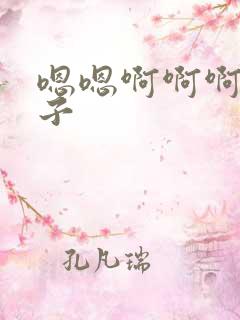 嗯嗯啊啊啊
子
孔凡瑞